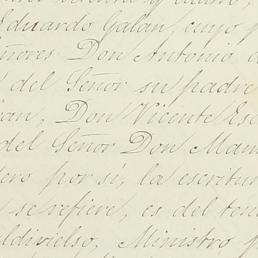 Eduardo Galan, cuyo p
ñores Don Antonio
del Señor su padre
an, Don Vicente Es
del Señor Don Man
ero por sí, la escritu
se refiere, es del ten
ldivielso, Ministro p